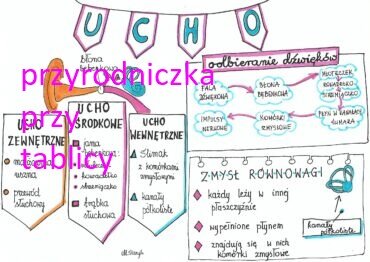 UCHO
błona
bębenkowa
przyrodniczka
przy
tablicy
UCHO
ZEWNĘTRZNE
małżowina
uszna
przewód
słuchowy
UCHO
ŚRODKOWE
jama
kowadełko
strzemiączko
trąbka
słuchowa
UCHO
WEWNĘTRZNE
ślimak
z komórkami
zmysłowymi
kanały
półkoliste
odbieranie dźwięków
FALA
DŹWIĘKOWA
BŁONA
BĘBENKOWA
MŁOTECZEK
KOWADEŁKO
STRZEMIĄCZKO
PŁYN W KANAŁACH
ŚLIMAKA
KOMÓRKI
ZMYSŁOWE
IMPULSY
NERWOWE
ZMYSŁ RÓWNOWAGI
każdy leży w innej
płaszczyźnie
wypełnione płynem
znajdują się w nich
komórki zmysłowe
kanały
półkoliste